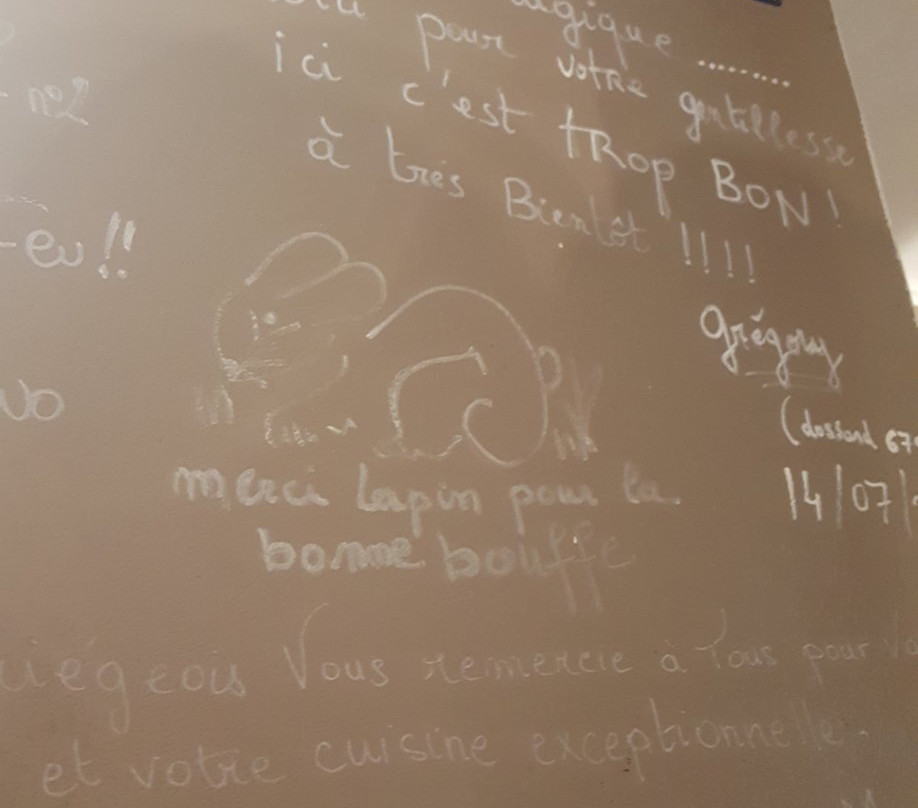 pour votre gentillesse
ici c'est tROp BON !
à très Bientôt !!!!
n°2
-eu !!
Grégory
(dossard 67
14/07/
vo
merci lapin pour la
bonne bouffe
Vous remercie à Tous pour vo
et votre cuisine exceptionnelle.